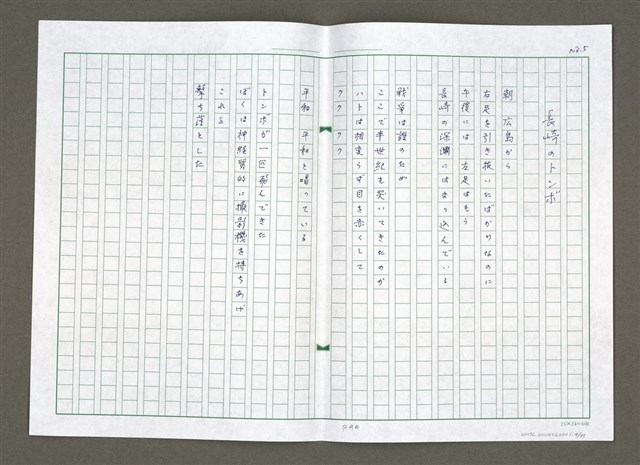 No.5
長崎のトンボ
朝 広島から
右足を引き抜いたばかりなのに
午後には 左足はもう
長崎の深淵にはまり込んでいる
戦争は誰のため
ここで半世紀も哭いてきたのか
ハトは相変らず目を赤くして
クク クク
平和 平和と唱っている
トンボが一匹飛んできた
ぼくは神経質的に撮影機を持ちあげ
これを
撃ち落とした